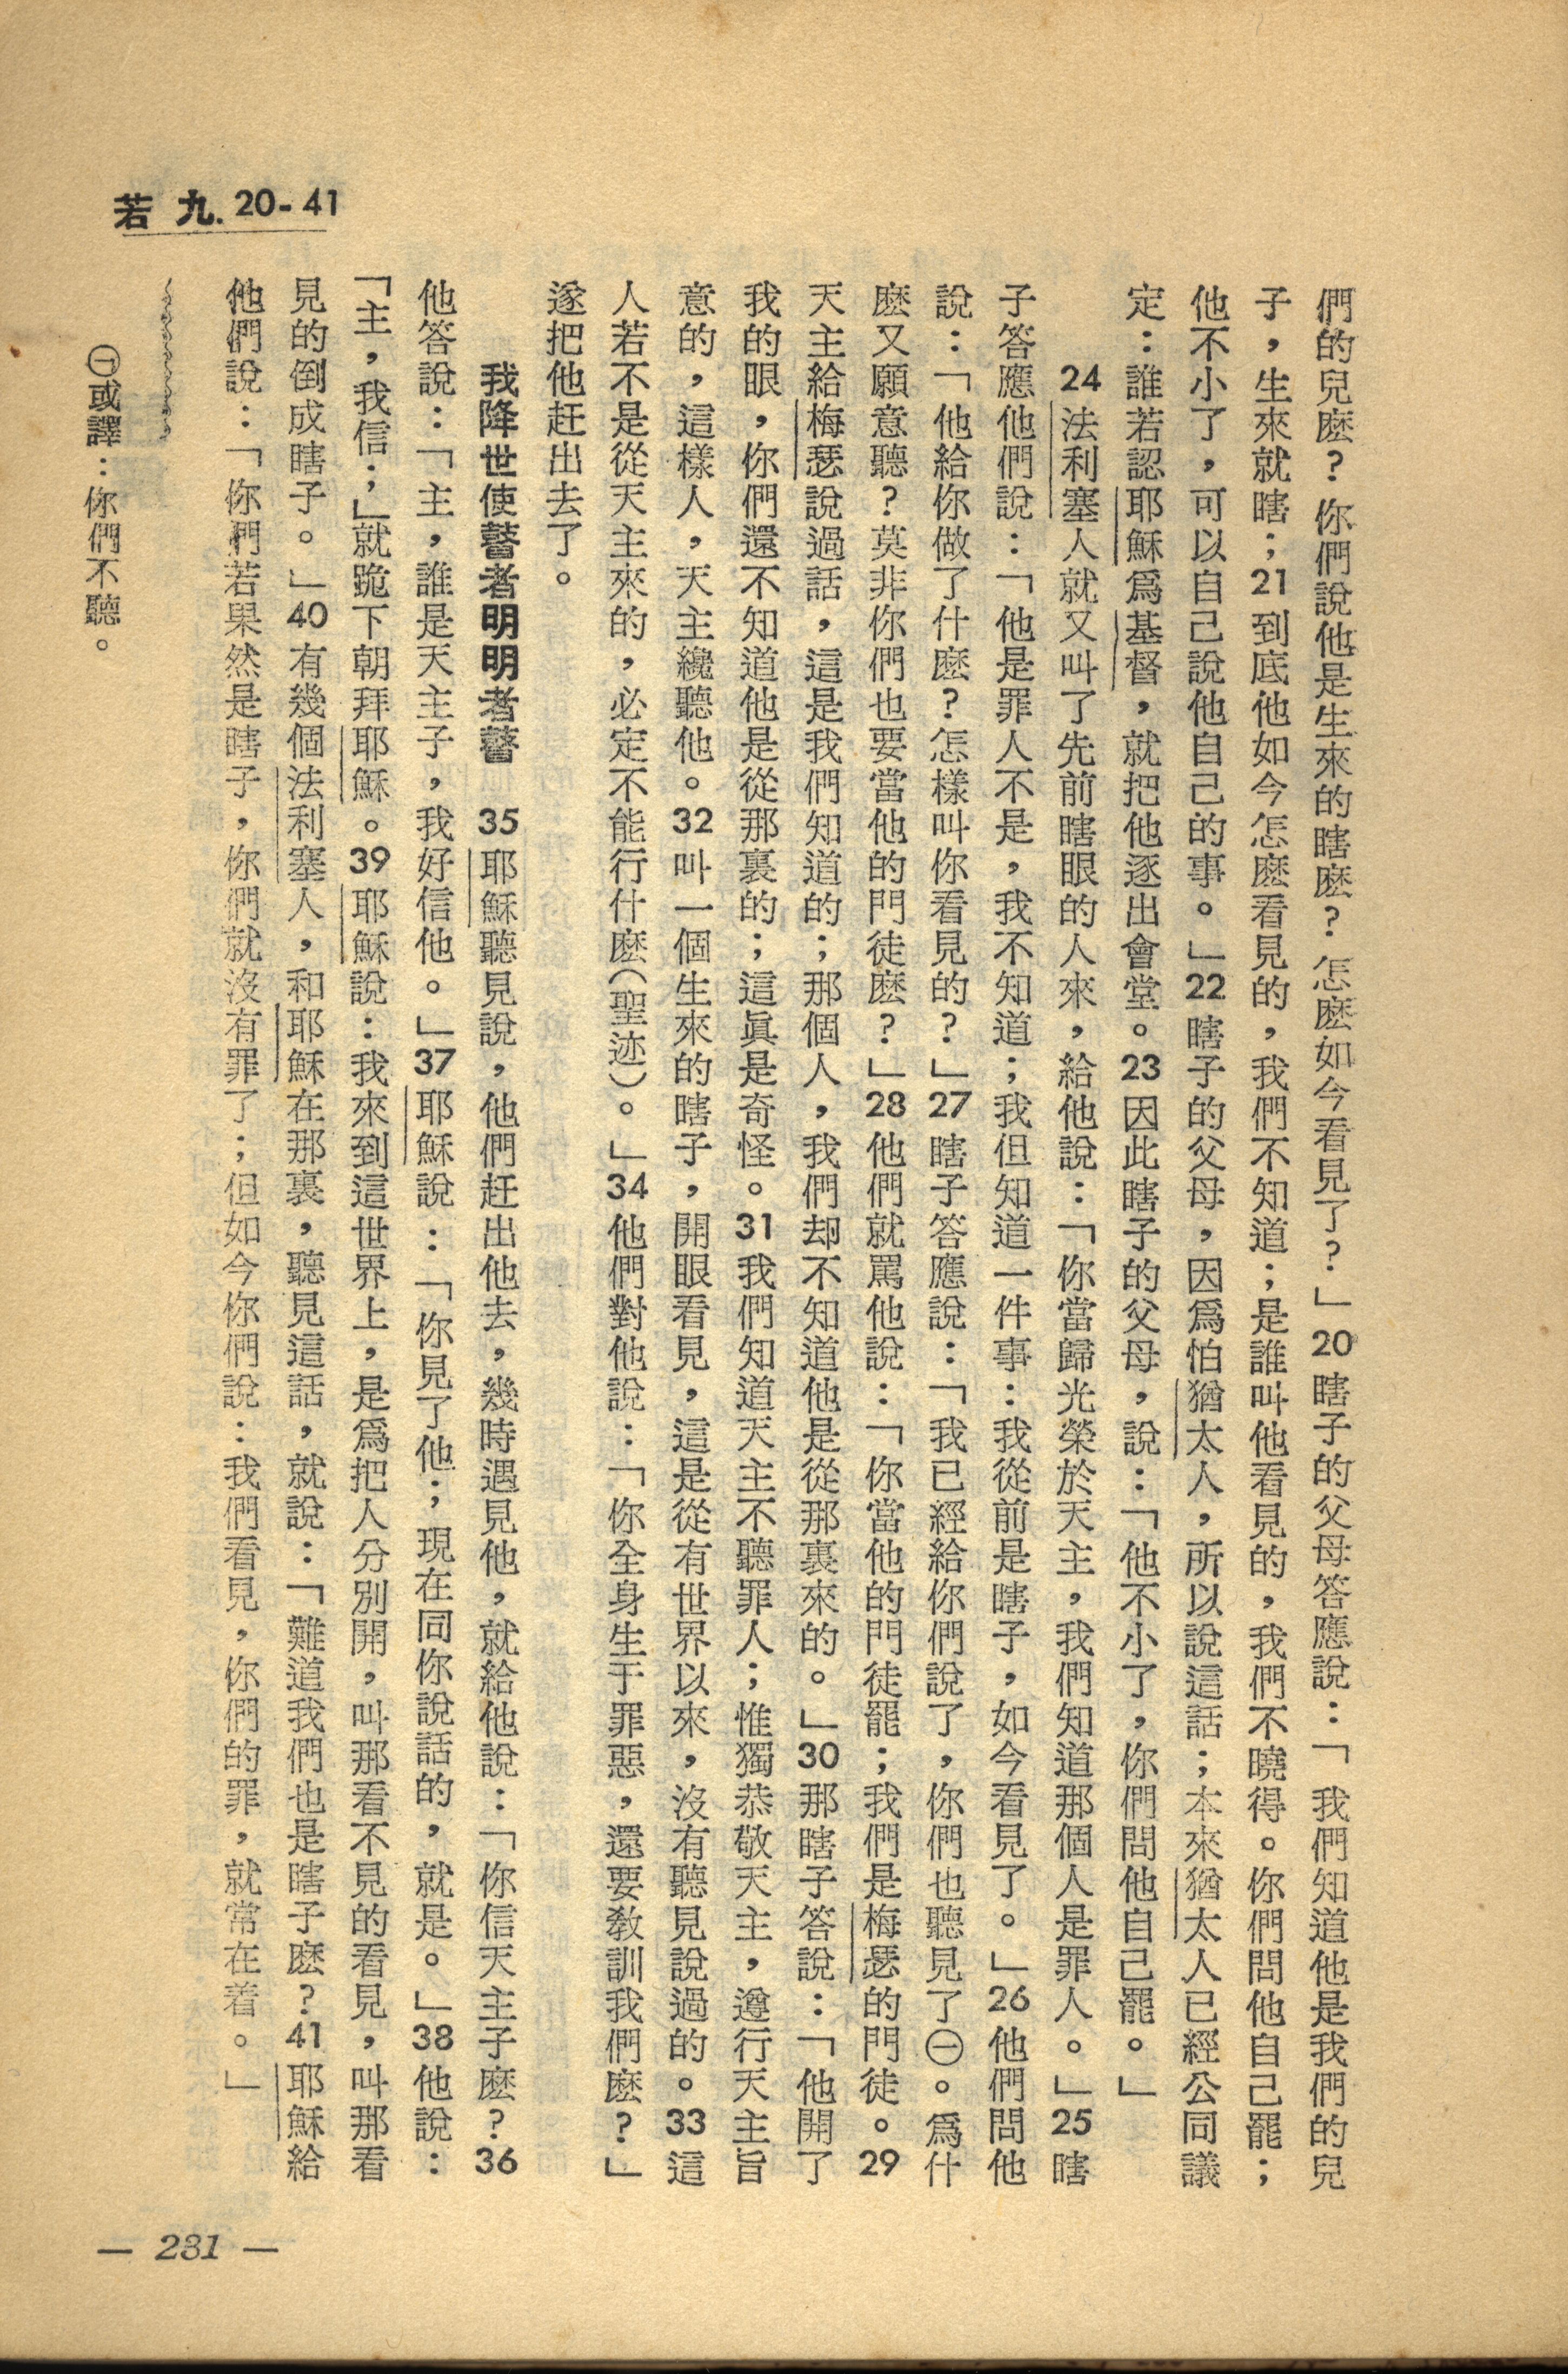 若九. 20-41
們的兒麽?你們說他是生來的瞎麽?怎麽如今看見了?」20瞎子的父母答應說:「我們知道他是我們的兒
子,生來就瞎;21到底他如今怎麽看見的,我們不知道;是誰叫他看見的,我們不曉得。你們問他自己罷;
他不小了,可以自己說他自己的事。」22瞎子的父母,因爲怕猶太人,所以說這話;本來猶太人已經公同議
定:誰若認耶穌爲基督,就把他逐出會堂。23因此瞎子的父母,說:「他不小了,你們問他自己罷。」
24法利塞人就又叫了先前瞎眼的人來,給他說:「你當歸光榮於天主,我們知道那個人是罪人。」25瞎
子答應他們說:「他是罪人不是,我不知道;我但知道一件事:我從前是瞎子,如今看見了。」26他們問他
說:「他給你做了什麽?怎樣叫你看見的?」27瞎子答應說:「我已經給你們說了,你們也聽見了㊀。爲什
麽又願意聽?莫非你們也要當他的門徒麽?」28他們就罵他說:「你當他的門徒罷;我們是梅瑟的門徒。29
天主給梅瑟說過話,這是我們知道的;那個人,我們却不知道他是從那裏來的。」30那瞎子答說:「他開了
我的眼,你們還不知道他是從那裏的;這眞是奇怪。31我們知道天主不聽罪人;惟獨恭敬天主,遵行天主旨
意的,這樣人,天主纔聽他。32叫一個生來的瞎子,開眼看見,這是從有世界以來,沒有聽見說過的。33這
人若不是從天主來的,必定不能行什麽(聖迹)。」34他們對他說:「你全身生于罪惡,還要教訓我們麽?」
遂把他赶出去了。
我降世使瞽者明明者瞽 35耶穌聽見說,他們赶出他去,幾時遇見他,就給他說:「你信天主子麽?36
他答說:「主,誰是天主子,我好信他。」37耶穌說:「你見了他;現在同你說話的,就是。」38他說:
「主,我信;」就跪下朝拜耶穌。39耶穌說:我來到這世界上,是爲把人分別開,叫那看不見的看見,叫那看
見的倒成瞎子。」40有幾個法利塞人,和耶穌在那裏,聽見這話,就說:「難道我們也是瞎子麽?41耶穌給
他們說:「你們若果然是瞎子,你們就沒有罪了;但如今你們說:我們看見,你們的罪,就常在着。」
㊀或譯:你們不聽。
— 231 —